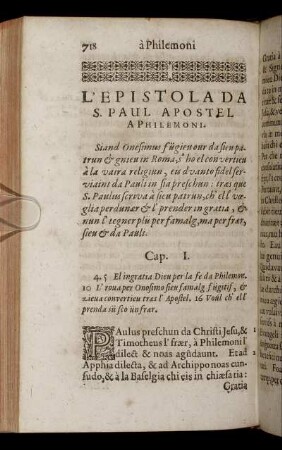 718 à Philemoni
L'EPISTOLA DA
S. PAUL APOSTEL
A PHILEMONI.
Siand Onesimus fügien our da sieu pa-
trun & gnieu in Roma, s' ho el convertieu
à la vaira religiun, eis dvanto fidel ser-
vaint da Pauli in sia preschun: tras que
S. Paulus scriva à sieu patrun, ch' ell vœ-
glia perdunar & l' prender in gratia, &
nun l' tegner plü per famalg, ma per frar,
sieu & da Pauli.
Cap. I.
4. 5 El ingratia Dieu per la fe da Philemon.
10 L' roua per Onosimo sieu famalg fugitif, &
uieua convertieu tras l' Apostel. 16 Voul ch' ell
prenda in sco un frar.
PAulus preschun da Christi Jesu, & 1
Timotheus l' frær, à Philemoni l'
dilect & noas agüdaunt. Et ad 2
Apphia dilecta, & ad Archippo noas cun-
sudo, & à la Baselgia chi eis in chiæsa tia:
Gratia